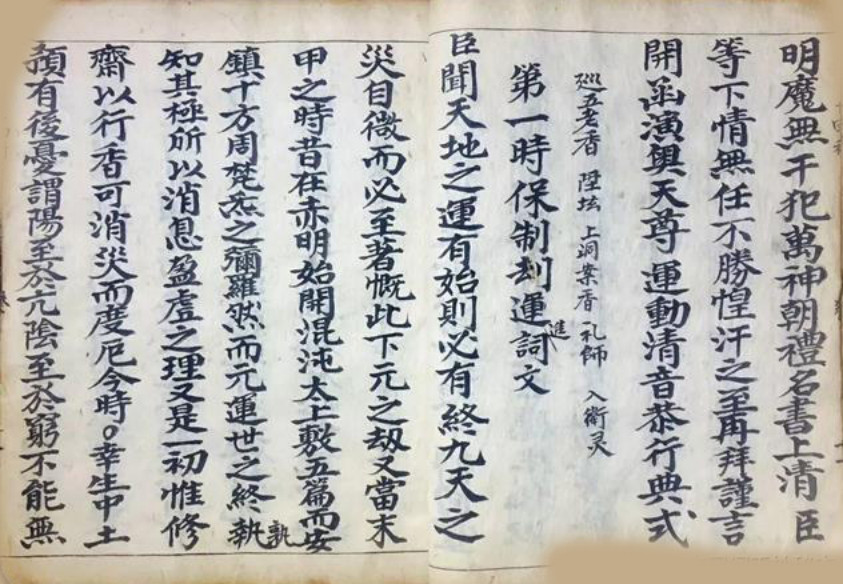 明魔無干犯萬神朝禮名書上清 臣
等下情無任不勝惶汗之至再拜謹言
開函演奧天尊 運動清音恭行典式
廵五老香 陞坛 上洞案香 礼師 入衛灵
第一時保制刼運進詞文
臣聞天地之運有始則必有終九天之
災自微而必至著慨此下元之刼又當末
甲之時昔在赤明始開混沌太上敷五篇而安
鎮十方周梵炁之彌羅然而元運世之終執孰
知其極所以消息盈虛之理又是一初惟修
齋以行香可消災而度厄今時○幸生中土
頇有後憂謂陽至於亢陰至於窮不能無